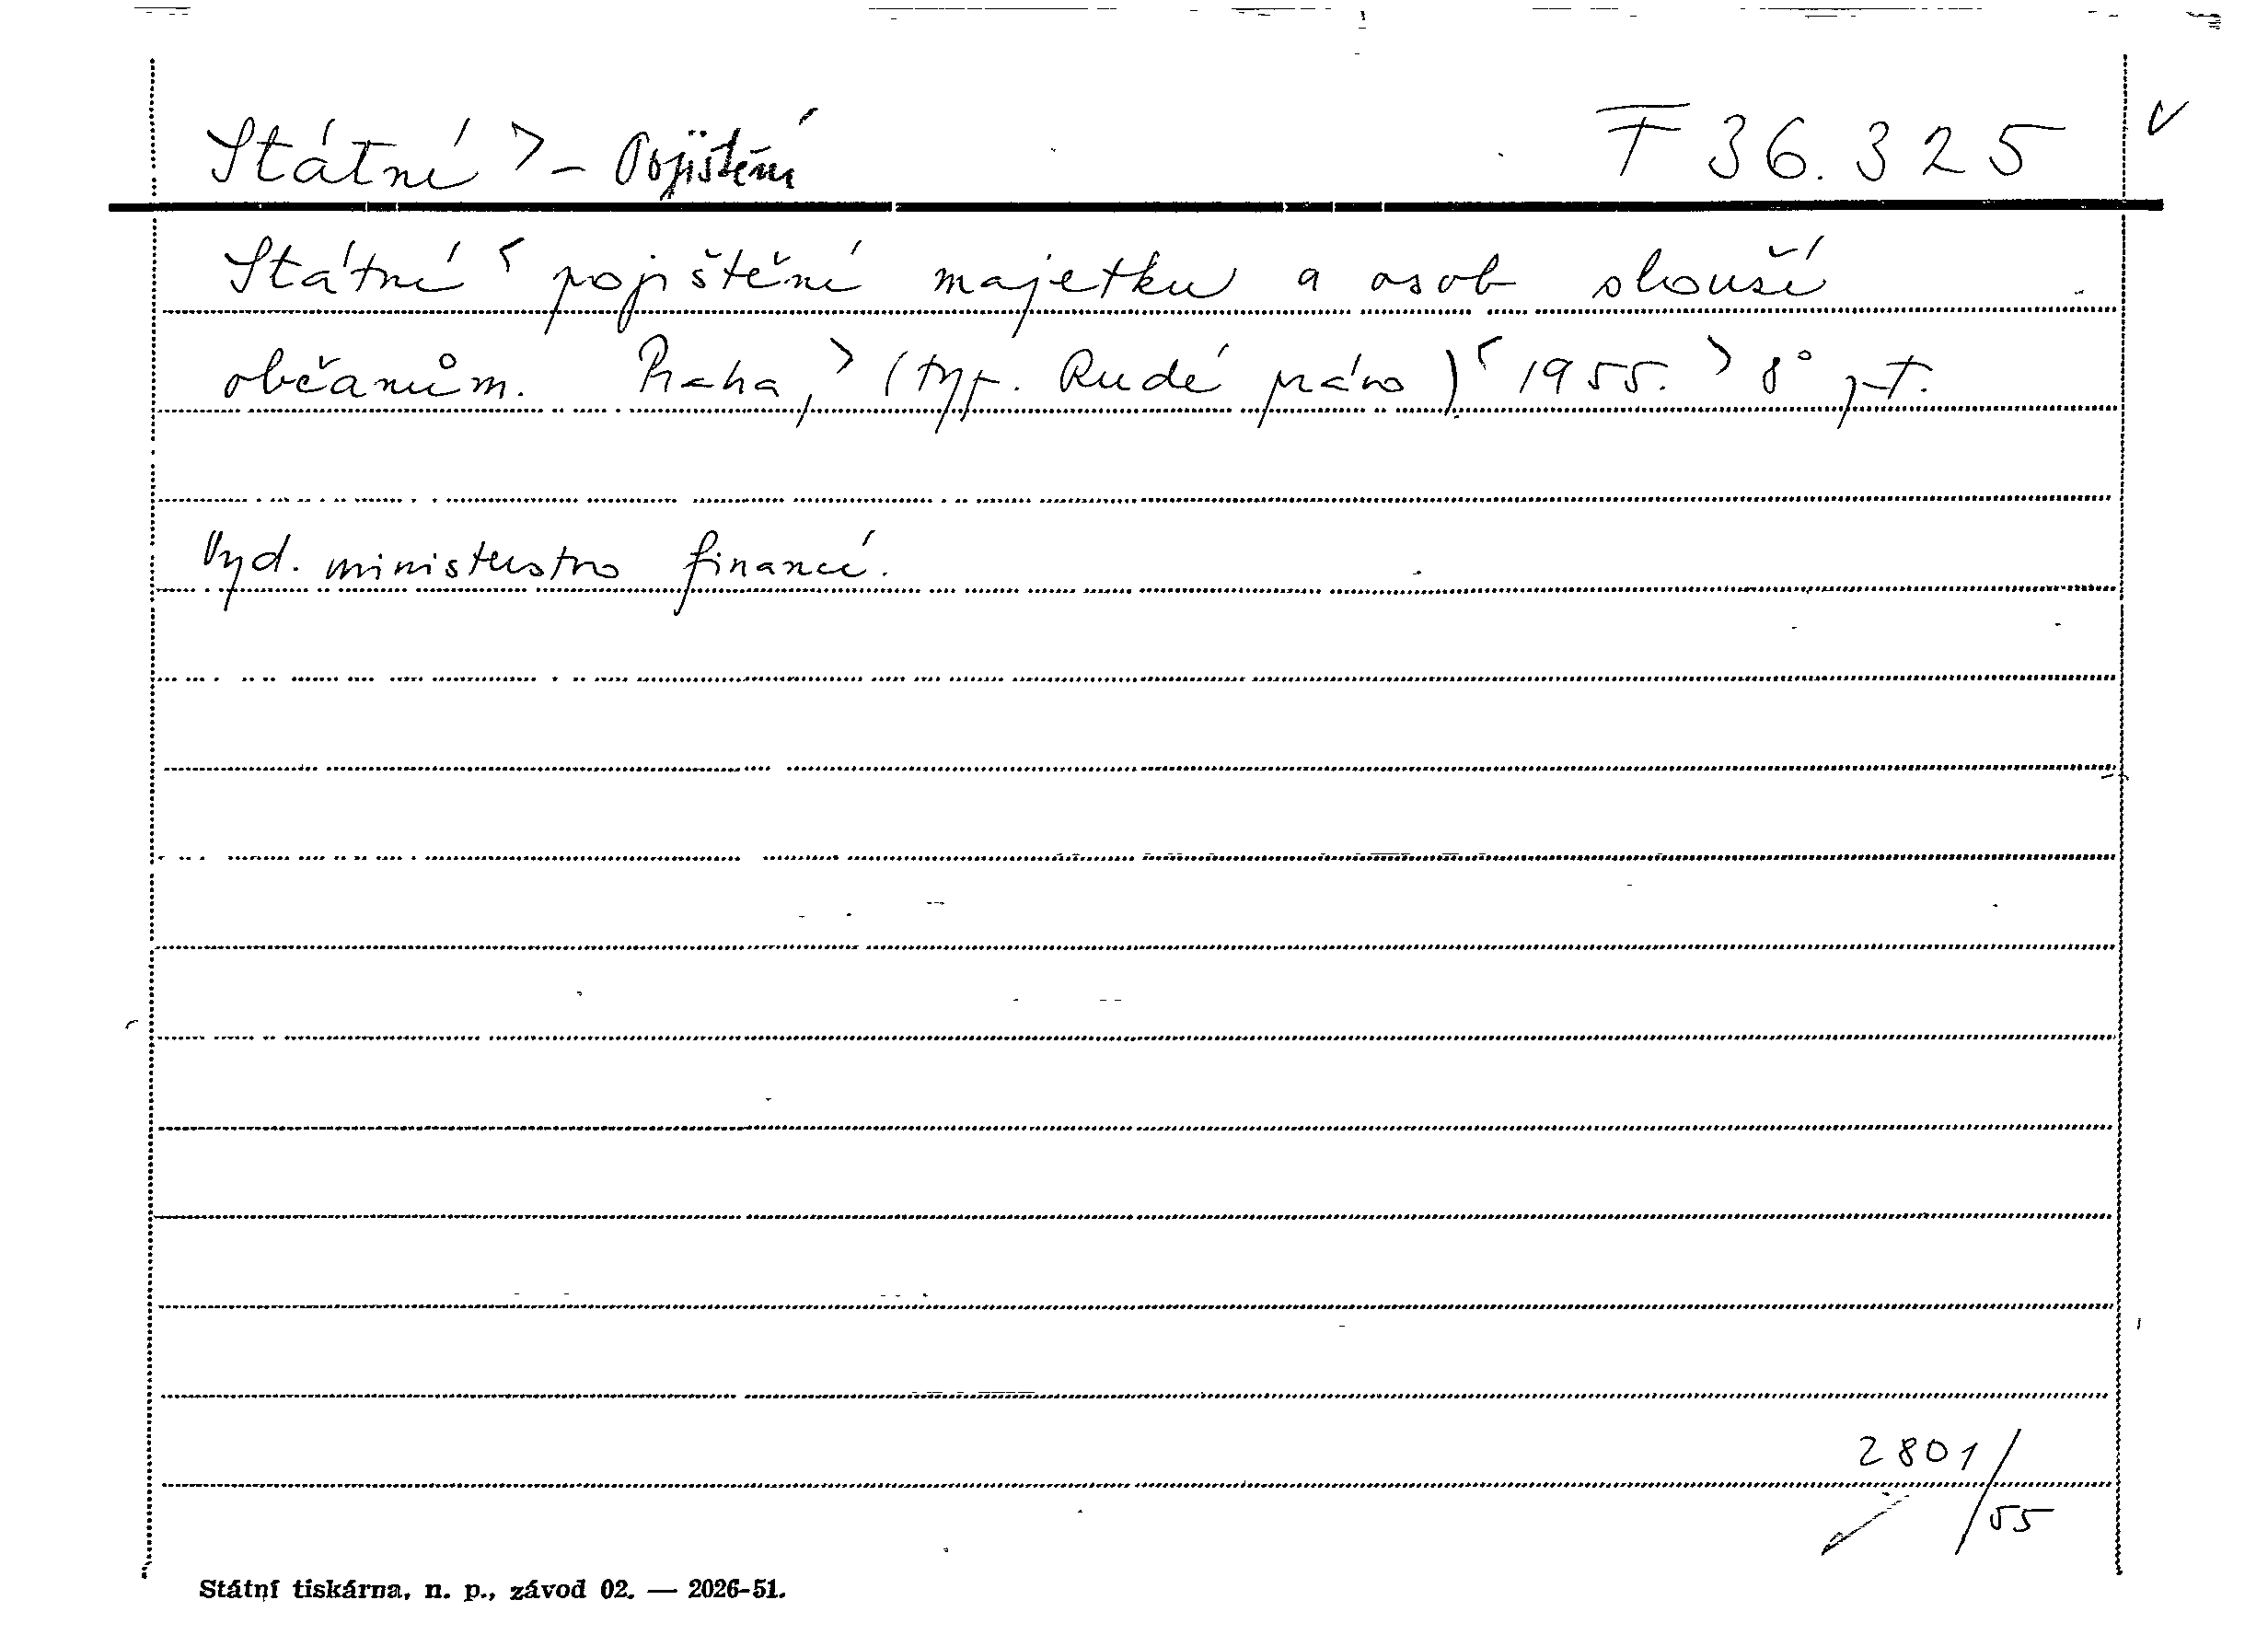 Státní > - Pojištění F 36.325 v
Státní < pojištění majetku a osob slouší
občanům. Praha, > (typ. Rudé právo) < 1955. > 8° 
Vyd. ministerstvo financí.
2801/
55
Státní tiskárna, n. p., závod 02. — 2026-51.